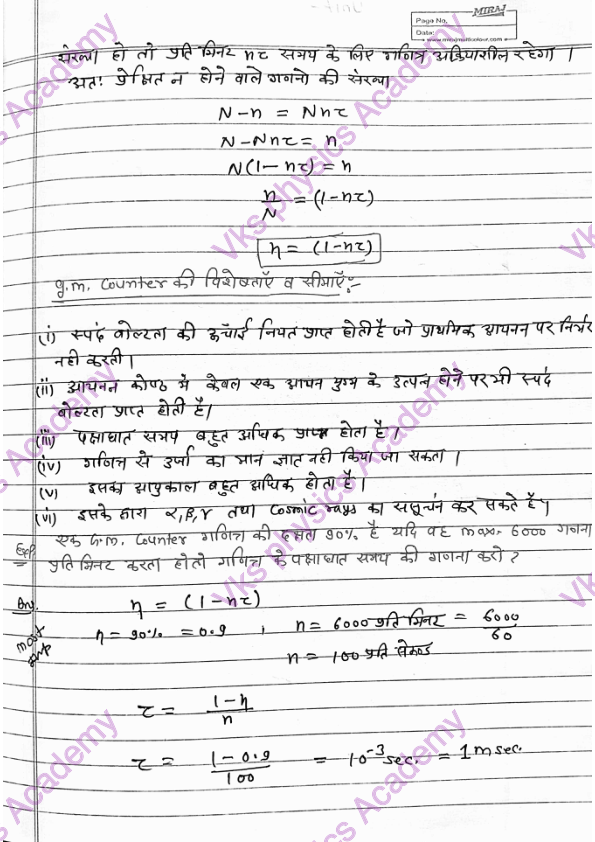 MIRAJ
Page No.
Date:
संख्या हो तो प्रति मिनट nτ समय के लिए गणित्र अक्रियाशील रहेगा ।
अतः प्रेक्षित न होने वाले गणनो की संख्या
N - n = Nnτ
N - Nnτ = n
N(1 - nτ) = n
n/N = (1 - nτ)
η = (1 - nτ)
g.m. Counter की विशेषताएँ व सीमाएँ:-
(i) स्पंद वोल्टता की ऊँचाई नियत प्राप्त होती है जो प्राथमिक आयनन पर निर्भर
नही करती ।
(ii) आयनन कोष्ठ मे केवल एक आयन युग्म के उत्पन्न होने पर भी स्पंद
वोल्टता प्राप्त होती है।
(iii) पक्षाघात समय बहुत अधिक प्राप्त होता है ।
(iv) गणित्र से उर्जा का मान ज्ञात नही किया जा सकता ।
(v) इसका आयुकाल बहुत अधिक होता है ।
(vi) इसके द्वारा α, β, γ तथा Cosmic rays का संसूचन कर सकते है।
एक G.m. Counter गणित्र की दक्षता 90% है यदि यह max. 6000 गणना
प्रति मिनट करता हो तो गणित्र के पक्षाघात समय की गणना करो ?
Ans.
η = (1 - nτ)
η = 90% = 0.9 , n = 6000 प्रति मिनट = 6000/60
most
n = 100 प्रति सेकण्ड
τ = (1 - η)/n
τ = (1 - 0.9)/100 = 10⁻³ sec. = 1 m sec.
Vks physics Academy